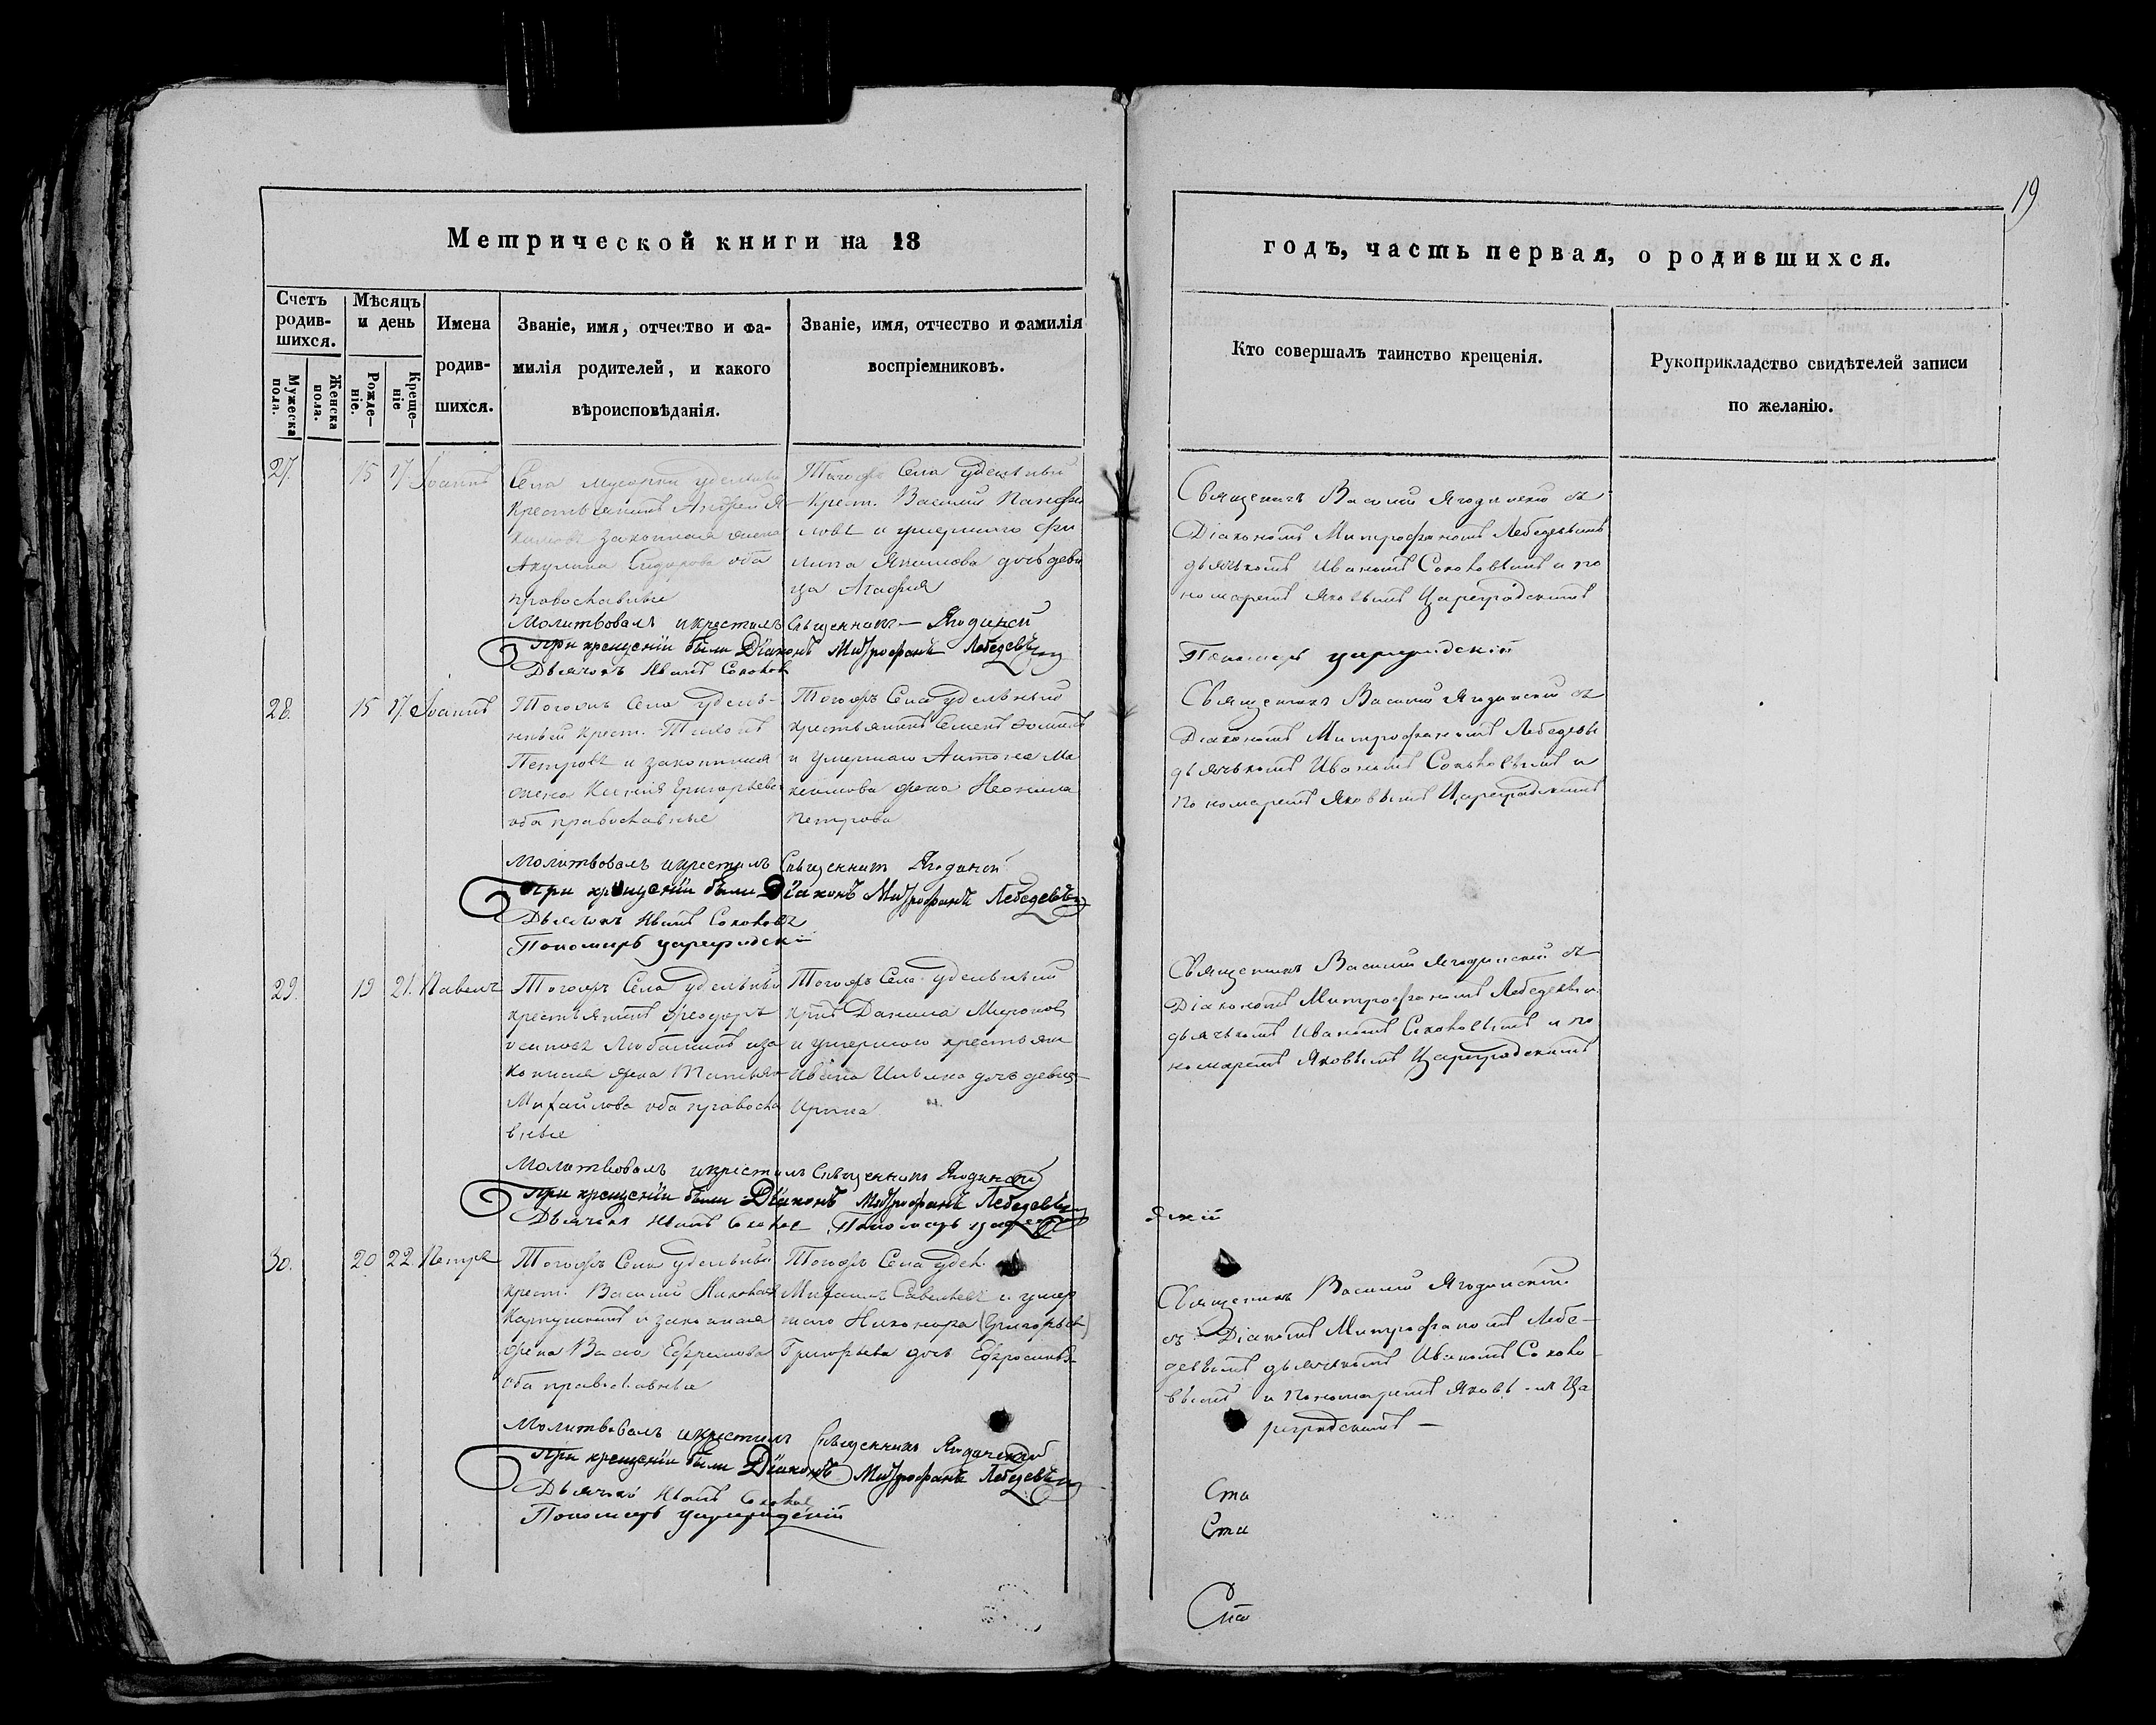 19
Метрической книги на 18
годъ, часть первая, о родившихся.
Счетъ родив-шихся.
Мужеска пола.
Женска пола.
Мѣсяцъ и день
Рожде-ніе.
Креще-ніе
Имена
родив-
шихся.
Званіе, имя, отчество и фа-
милія родителей, и какого
вѣроисповѣданія.
Званіе, имя, отчество и фамилія
воспріемниковъ.
Кто совершалъ таинство крещенія.
Рукоприкладство свидѣтелей записи
по желанію.
27.
15
17.
Іоаннъ
Села удельный
крестьянинъ Андрей Я
кимовъ законная жена
Акулина Сидорова оба
православные
Тогожъ Села удельный
Крест. Василій Панфи
ловъ и умершаго Фи
липа Якимова дочь деви
ца Агафия
Священникъ Василий Ягодинский съ
Діакономъ Митрофаномъ Лебедевымъ
дьячкомъ Иваномъ Соколовымъ и по
номаремъ Яковымъ Цареградскимъ
Молитвовалъ и крестилъ Священникъ Ягодинской
При крещеніи были Діаконъ Митрофанъ Лебедевъ
Дьячокъ Иванъ Соколовъ
Пономарь Цареградскій
28.
15
17.
Іоаннъ
Тогожъ Села удель-
ный крест.
Петровъ и законная
жена Ксения Григорьева
оба православные
Тогожъ Села удельный
крестьянинъ Семенъ
и умершаго Антона Ма
ксимова жена Неонила
Петрова
Священникъ Василий Ягодинский съ
Діакономъ Митрофаномъ Лебедевы
дьячкомъ Иваномъ Соколовымъ и
пономаремъ Яковымъ Цареградскимъ
Молитвовалъ и крестилъ Священникъ Ягодиной
При крещеніи были Діаконъ Митрофанъ Лебедевъ
Дьячокъ Иванъ Соколовъ
Пономарь Цареградскій
29.
19
21.
Павелъ
Тогожъ Села удельный
крестьянинъ Феодоръ
Осиповъ и за
конная жена Татьяна
Михайлова оба правосла
вные
Тогожъ Села удельный
Данила Миронов
и умершаго крестьян
Ивана Ильина дочь девица
Ирина
Священникъ Василий Ягодинский съ
Діакономъ Митрофаномъ Лебедевы
дьячкомъ Иваномъ Соколовымъ и по
номаремъ Яковымъ Цареградскимъ
Молитвовалъ и крестилъ Священникъ Ягодинской
При крещеніи были Діаконъ Митрофанъ Лебедевъ
Дьячокъ Иванъ Соколов Пономарь
30.
20
22.
Петръ
Тогожъ Села удельный
крест. Василий Николаев
и законная
жена Васса Ефремова
оба православные
Тогожъ Села удел.
Михаилъ Савельевъ и умер
шаго Никонора (Григорьев)
Григорьева дочь Ефросинья
Священникъ Василий Ягодинский
съ Діакономъ Митрофаномъ Лебе-
девымъ дьячкомъ Иваномъ Соколо-
вымъ и Пономаремъ Яковымъ Ца
реградскимъ —
Молитвовалъ и крестилъ Священникъ Ягодинской
При крещеніи были Діаконъ Митрофанъ Лебедевъ
Дьячокъ Иванъ Соколов
Пономарь Цареградскій
Ста
Ста